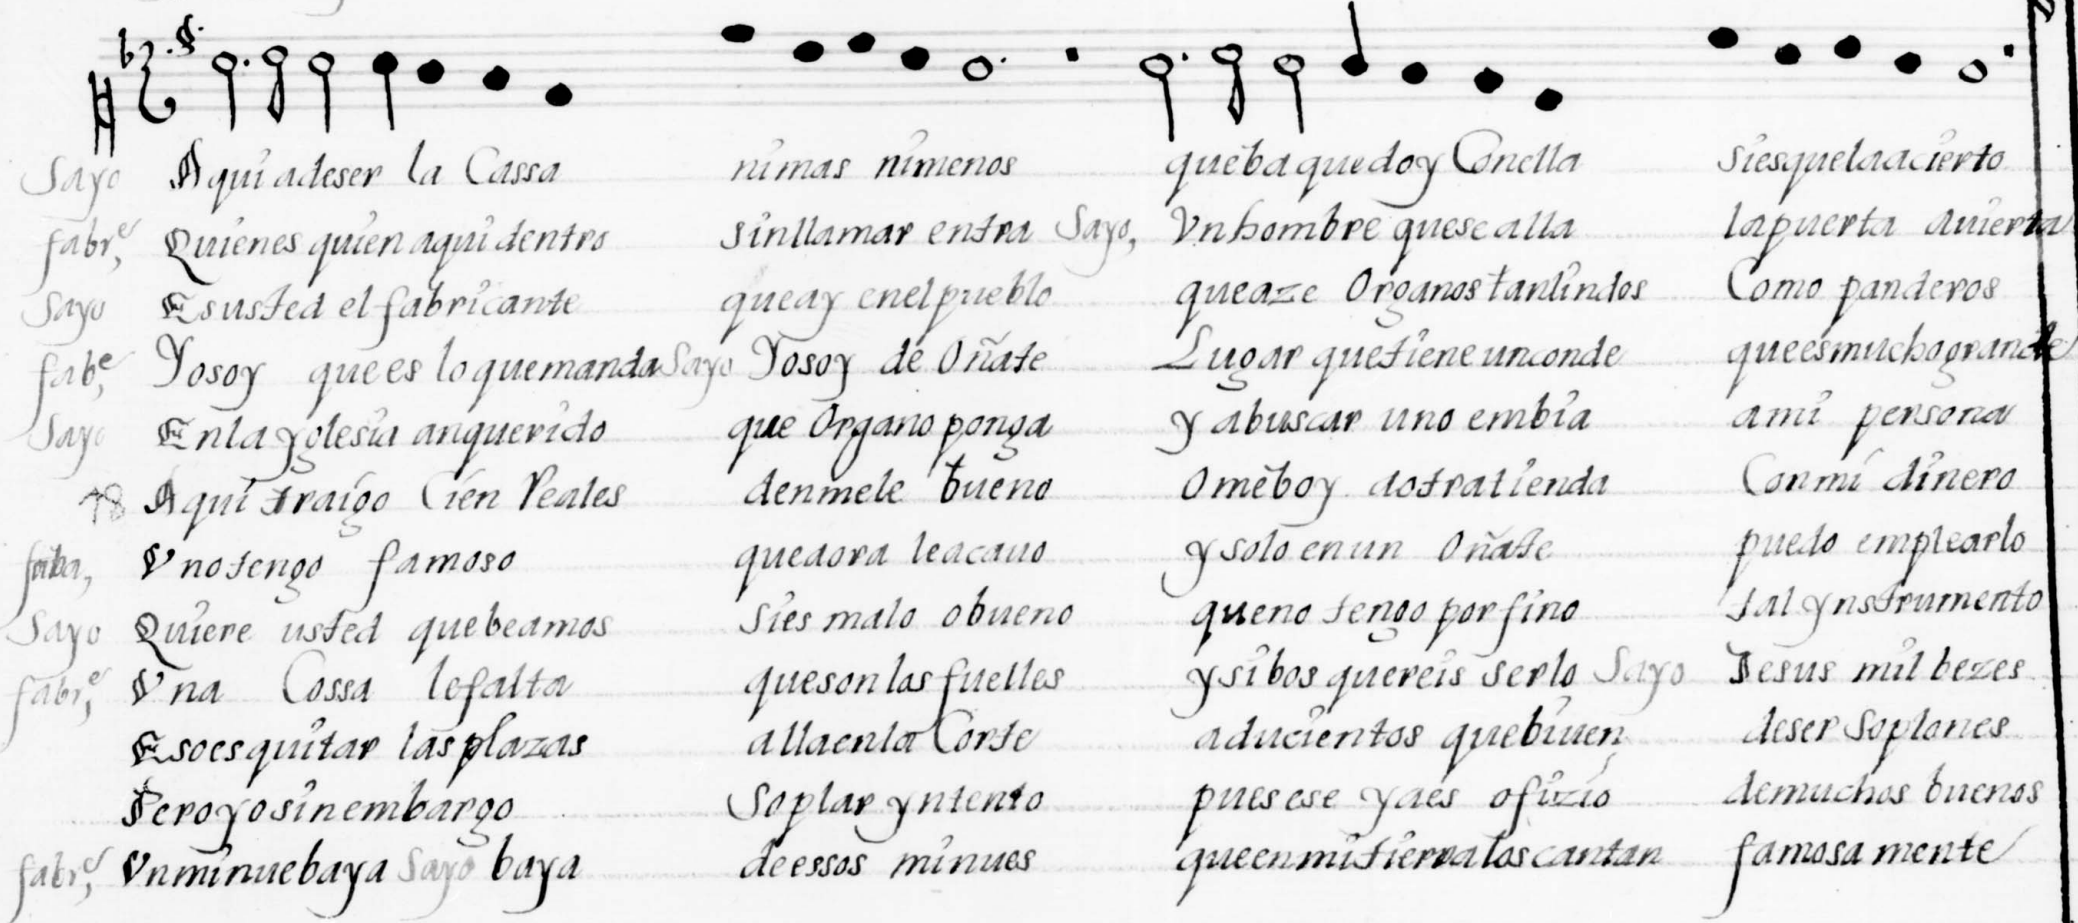 Sayo Aqui adeser la Cassa nimas nimenos quebaquedoy Conella siesquelaacierto
fabr.e Quienes quien aqui dentro sinllamar entra Sayo, Vnhombre quesealla lapuerta auierta
Sayo Esusted el fabricante queay enelpueblo queaze Organos tanlindos Como panderos
fab.e Yosoy quees loquemanda Sayo Yosoy de Oñate Lugar quetiene unconde queesmuchogrande
Sayo Enla yglesia anquerido que Organo ponga y abuscar uno embia ami persona
18 Aqui traigo Cien Reales denmele bueno Omeboy aotratienda Conmi dinero
faba, Vnotengo famoso queaora leacauo ysolo enun Oñate puedo emplearlo
Sayo Quiere usted quebeamos sies malo obueno queno tengo porfino tal ynstrumento
fabr.e Vna Cossa lefalta quesonlos fuelles ysibos quereis serlo Sayo Jesus mil bezes
Esoes quitar las plazas allaenla Corte aducientos quebiuen deser Soplones
Peroyosinembargo Soplar yntento puesese yaes ofizio demuchos buenos
fabr.e Vnminuebaya Sayo baya deessos minues queenmitierralascantan famosamente